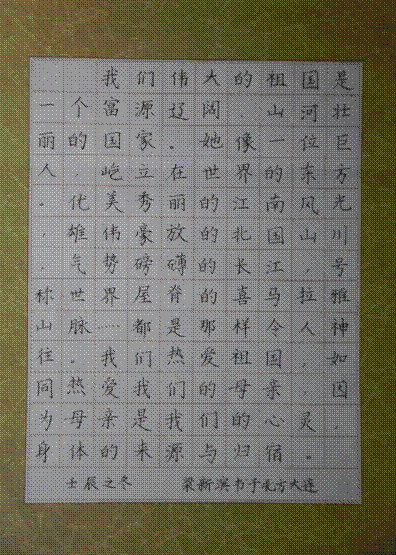 我们伟大的祖国是
一个富源辽阔,山河壮
丽的国家。她像一位巨
人,屹立在世界的东方
。优美秀丽的江南风光
,雄伟豪放的北国山川
,气势磅礴的长江,号
称世界屋脊的喜马拉雅
山脉……都是那样令人神
往。我们热爱祖国,如
同热爱我们的母亲,因
为母亲是我们的心灵,
身体的来源与归宿。
壬辰之冬 梁新滨书于北方大连